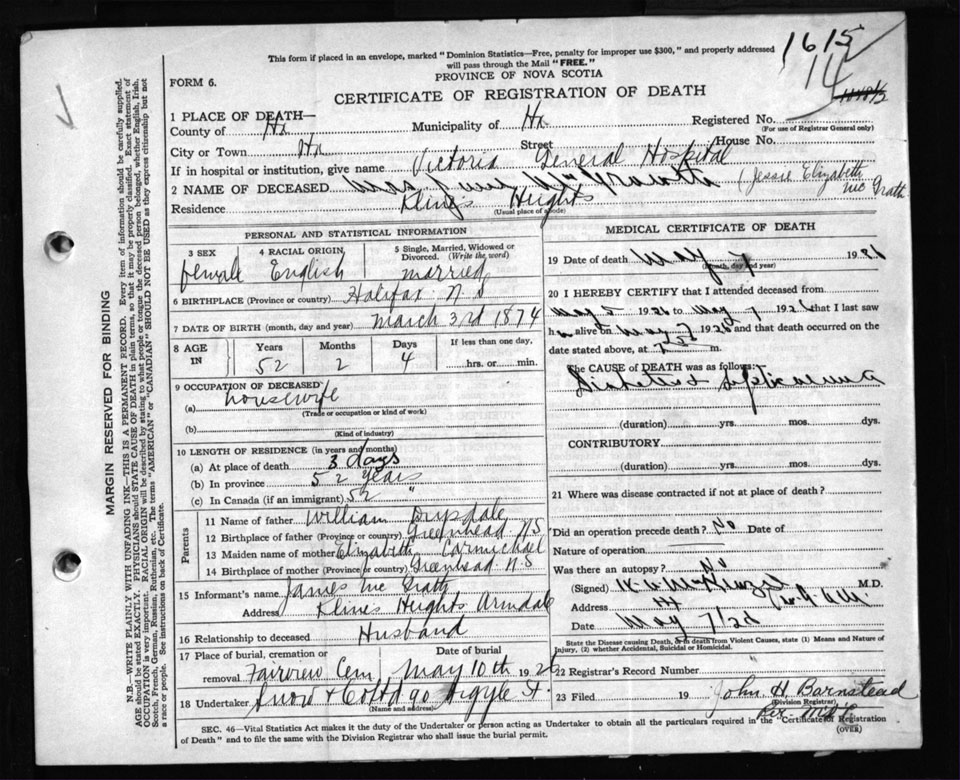 This form if placed in an envelope, marked "Dominion Statistics—Free, penalty for improper use $300," and properly addressed
will pass through the Mail "FREE."
1615
14
FORM 6.
PROVINCE OF NOVA SCOTIA
CERTIFICATE OF REGISTRATION OF DEATH
1 PLACE OF DEATH—
County of Hx Municipality of Hx Registered No.
(For use of Registrar General only)
City or Town Hx Street House No.
If in hospital or institution, give name Victoria General Hospital
2 NAME OF DECEASED. Mrs. (Jessie Elizabeth
Mc Grath
Residence Klines Heights
(Usual place of abode)
PERSONAL AND STATISTICAL INFORMATION
3 SEX 4 RACIAL ORIGIN 5 Single, Married, Widowed or
Divorced. (Write the word)
female English married
6 BIRTHPLACE (Province or country) Halifax N.S
7 DATE OF BIRTH (month, day and year) March 3rd 1874
8 AGE IN Years Months Days If less than one day,
52 2 4 hrs. or min.
9 OCCUPATION OF DECEASED
(a) housewife
(Trade or occupation or kind of work)
(b)
(Kind of industry)
10 LENGTH OF RESIDENCE (in years and months)
(a) At place of death 3 days
(b) In province 52 years
(c) In Canada (if an immigrant) 52 "
Parents
11 Name of father William Drysdale
12 Birthplace of father (Province or country) Greenhead N.S
13 Maiden name of mother Elizabeth Carmichael
14 Birthplace of mother (Province or country) Greenhead N.S
15 Informant's name James Mc Grath
Address Klines Heights Armdale
16 Relationship to deceased Husband
17 Place of burial, cremation or Date of burial
removal Fairview Cem May 10th 1926
18 Undertaker Snow & Co Ltd 90 Argyle St.
(Name and address)
MEDICAL CERTIFICATE OF DEATH
19 Date of death May 7 1926
(Month, day and year)
20 I HEREBY CERTIFY that I attended deceased from
May 5 1926 to May 7 1926 that I last saw
h alive on May 7 1926 and that death occurred on the
date stated above, at m.
The CAUSE of DEATH was as follows:
Diabetes & Septicaemia
(duration) yrs. mos. dys.
CONTRIBUTORY
(duration) yrs. mos. dys.
21 Where was disease contracted if not at place of death?
Did an operation precede death? No Date of
Nature of operation
Was there an autopsy? No
(Signed) M.D.
Address
Date May 7
State the Disease causing Death, or in death from Violent Causes, state (1) Means and Nature of
Injury, (2) whether Accidental, Suicidal or Homicidal.
22 Registrar's Record Number
23 Filed 19 John H. Barnstead
(Division Registrar)
SEC. 46—Vital Statistics Act makes it the duty of the Undertaker or person acting as Undertaker to obtain all the particulars required in the "Certificate of Registration
of Death" and to file the same with the Division Registrar who shall issue the burial permit.
(OVER)
MARGIN RESERVED FOR BINDING
N.B.—WRITE PLAINLY WITH UNFADING INK—THIS IS A PERMANENT RECORD. Every item of information should be carefully supplied.
AGE should be stated EXACTLY. PHYSICIANS should STATE CAUSE OF DEATH in plain terms, so that it may be properly classified. Exact statement of
OCCUPATION is very important. RACIAL ORIGIN will be described by stating to what people or tongue the deceased person belonged, whether English, Irish,
Scotch, French, German, Russian, Ruthenian, etc. The terms "AMERICAN" or "CANADIAN" SHOULD NOT BE USED as they express citizenship but not
a race or people. See instructions on back of Certificate.